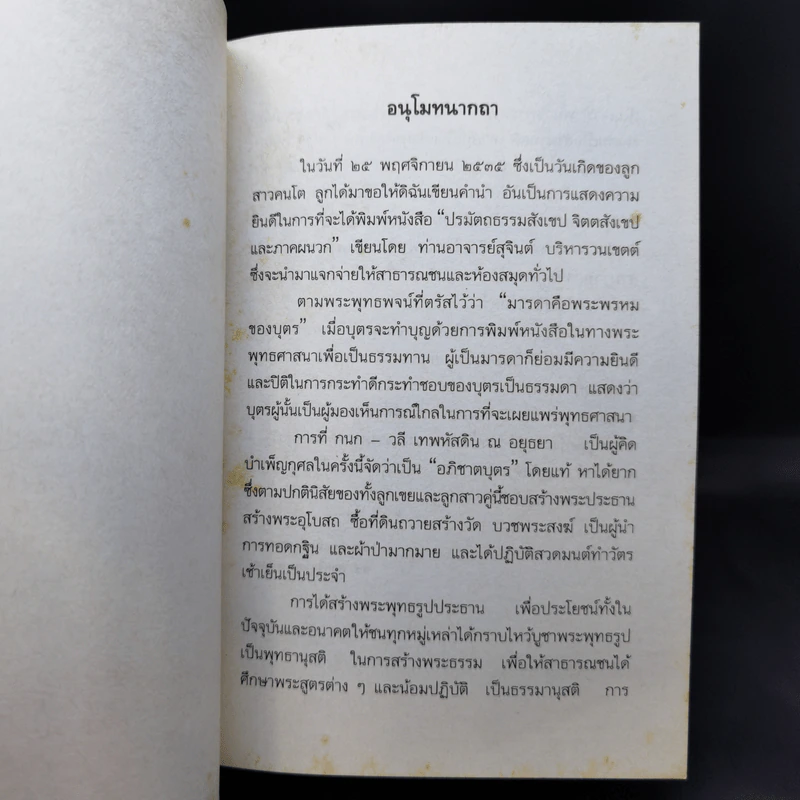 อนุโมทนากถา
ในวันที่ ๒๕ พฤศจิกายน ๒๕๓๕ ซึ่งเป็นวันเกิดของลูก
สาวคนโต ลูกได้มาขอให้ดิฉันเขียนคำนำ อันเป็นการแสดงความ
ยินดีในการที่จะได้พิมพ์หนังสือ “ปรมัตถธรรมสังเขป จิตตสังเขป
และภาคผนวก” เขียนโดย ท่านอาจารย์สุจินต์ บริหารวนเขตต์
ซึ่งจะนำมาแจกจ่ายให้สาธารณชนและห้องสมุดทั่วไป
ตามพระพุทธพจน์ที่ตรัสไว้ว่า “มารดาคือพระพรหม
ของบุตร” เมื่อบุตรจะทำบุญด้วยการพิมพ์หนังสือในทางพระ
พุทธศาสนาเพื่อเป็นธรรมทาน ผู้เป็นมารดาก็ย่อมมีความยินดี
และปิติในการกระทำดีกระทำชอบของบุตรเป็นธรรมดา แสดงว่า
บุตรผู้นั้นเป็นผู้มองเห็นการณ์ไกลในการที่จะเผยแพร่พุทธศาสนา
การที่ กนก – วลี เทพหัสดิน ณ อยุธยา เป็นผู้คิด
บำเพ็ญกุศลในครั้งนี้จัดว่าเป็น “อภิชาตบุตร” โดยแท้ หาได้ยาก
ซึ่งตามปกตินิสัยของทั้งลูกเขยและลูกสาวคู่นี้ชอบสร้างพระประธาน
สร้างพระอุโบสถ ซื้อที่ดินถวายสร้างวัด บวชพระสงฆ์ เป็นผู้นำ
การทอดกฐิน และผ้าป่ามากมาย และได้ปฏิบัติสวดมนต์ทำวัตร
เช้าเย็นเป็นประจำ
การได้สร้างพระพุทธรูปประธาน เพื่อประโยชน์ทั้งใน
ปัจจุบันและอนาคตให้ชนทุกหมู่เหล่าได้กราบไหว้บูชาพระพุทธรูป
เป็นพุทธานุสติ ในการสร้างพระธรรม เพื่อให้สาธารณชนได้
ศึกษาพระสูตรต่าง ๆ และน้อมปฏิบัติ เป็นธรรมานุสติ การ